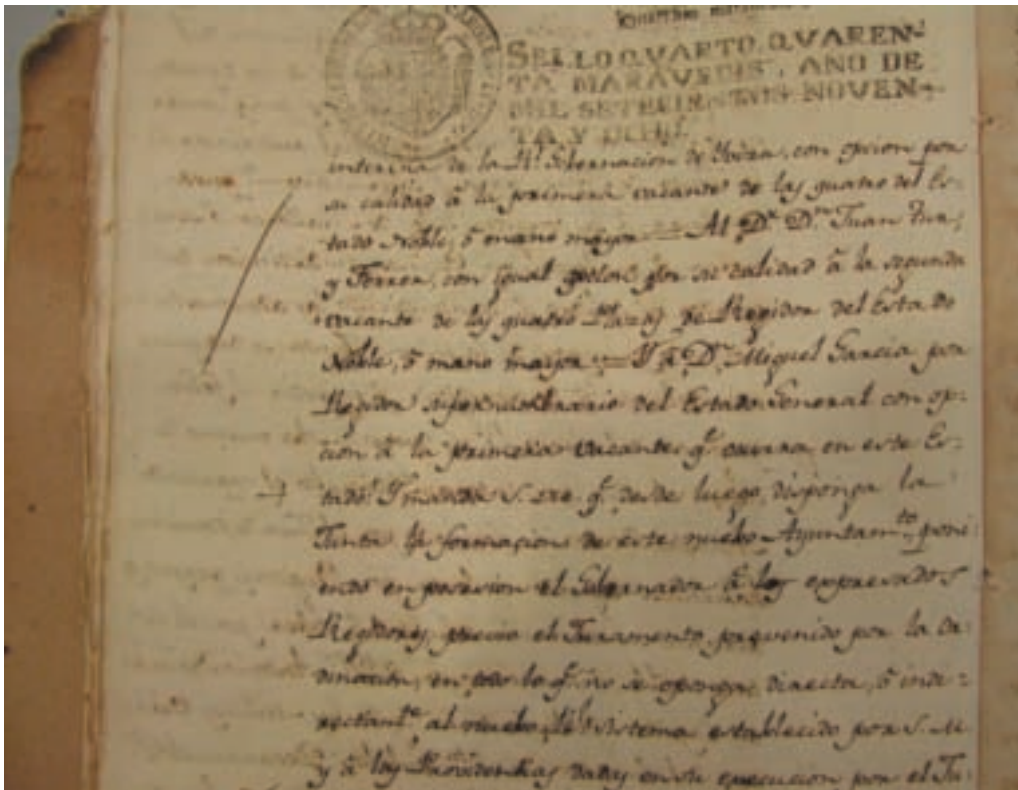 SELLO QVARTO, QVAREN-
TA MARAVEDIS, AÑO DE
MIL SETECIENTOS NOVEN-
TA Y
interina de la Rl. Gibernacion de con opcion por
su calidad â la primera vacante de las quatro del Es-
tado Noble, ô mano mayor = Al Dr. Dn. Juan
y Ferrer, con igual por su calidad â la segunda
vacante de las quatro Plazas de Regidor del Estado
Noble, ô mano mayor = Y a Dn. Miguel Garcia por
Regidor supernumerario del Estado General con op-
cion â la primera vacante qe. ocurra en este Es-
tado. Y manda S. exa. qe. desde luego, disponga la
Junta la formacion de este nuebo Ayuntamto. poni-
endo en posesion el Gibernador â los expresados
Regidores, previo el Juramento, prevenido por la Or-
dinación, en todo lo qe. no se oponga, directa, ô indi-
rectamte. al nuebo sistema, establecido por S. M.
y â las Providencias dadas en su execucion por el Ju-